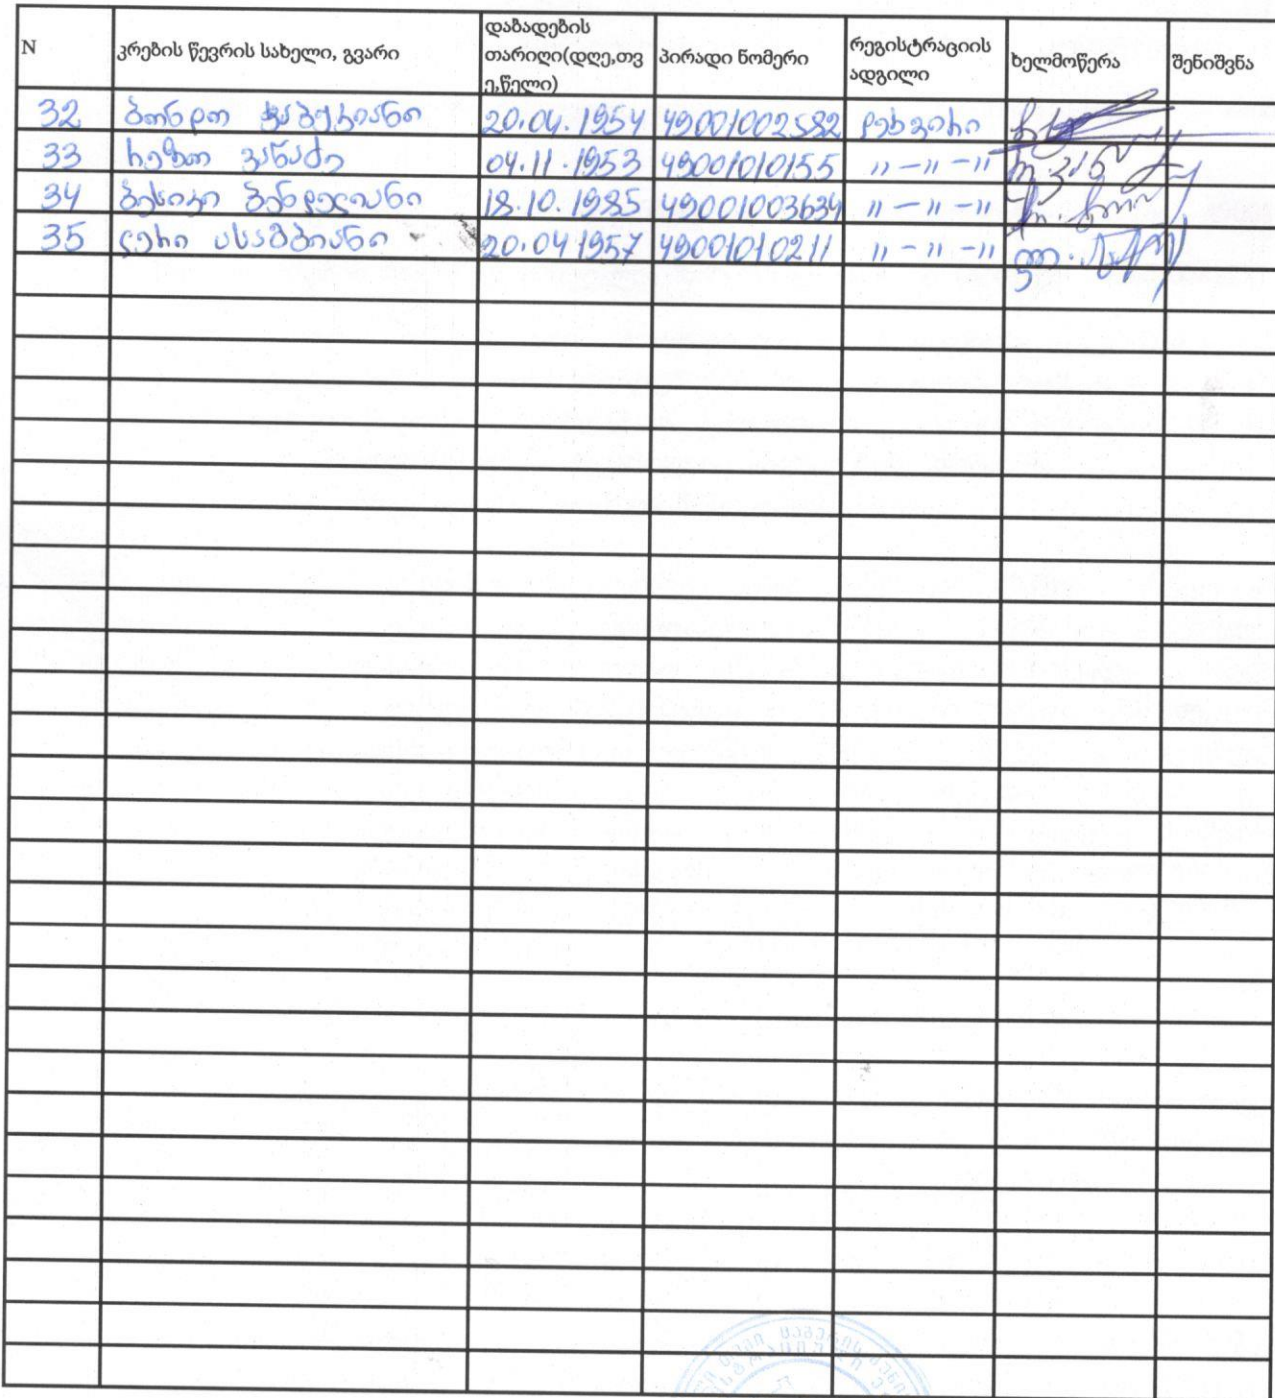 N კრების წევრის სახელი, გვარი დაბადების თარიღი(დღე,თვე,წელი) პირადი ნომერი რეგისტრაციის ადგილი ხელმოწერა შენიშვნა
32 ბონდო 20.04.1954 49001002582 დეხვირი
33 რეზო ვანაძე 04.11.1953 49001010155 " - " - "
34 ბესიკი ბენდელიანი 18.10.1985 49001003634 " - " - "
35 ლერი 20.04 1957 49001010211 " - " - "